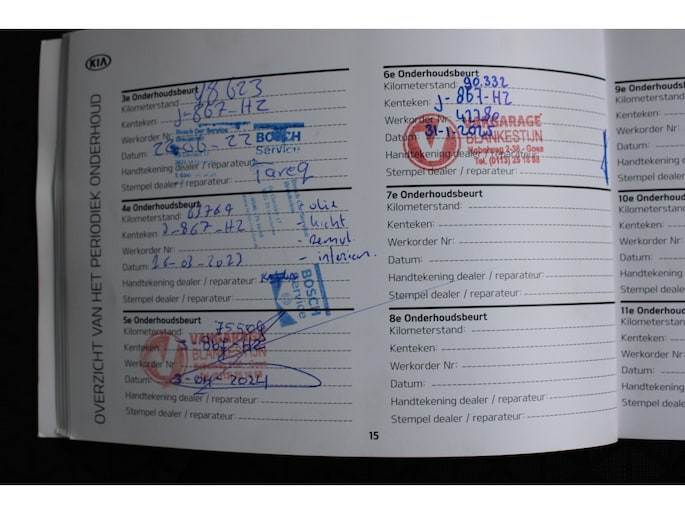 KIA
OVERZICHT VAN HET PERIODIEK ONDERHOUD
3e Onderhoudsbeurt
Kilometerstand: 48623
Kenteken: J-867-HZ
Werkorder Nr:
Datum: 20-06-22
Handtekening dealer / reparateur:
Stempel dealer / reparateur: Tareq
Bosch Car Service
BOSCH
Service
4e Onderhoudsbeurt
Kilometerstand: 63764 - olie
Kenteken: J-867-HZ - lucht
Werkorder Nr: - remvl.
Datum: 16-03-2023 - interieur.
Handtekening dealer / reparateur:
Stempel dealer / reparateur:
BOSCH
Service
5e Onderhoudsbeurt
Kilometerstand: 75508
Kenteken: J-867-HZ
Werkorder Nr:
Datum: 3-04-2024
VAKGARAGE
BLANKESTIJN
Handtekening dealer / reparateur:
Stempel dealer / reparateur:
6e Onderhoudsbeurt
Kilometerstand: 90.332
Kenteken: J-867-HZ
Werkorder Nr: 47280
Datum: 31-1-2025
Handtekening dealer / reparateur:
Stempel dealer / reparateur:
VAKGARAGE
BLANKESTIJN
Nobelweg 2-38 - Goes
7e Onderhoudsbeurt
Kilometerstand:
Kenteken:
Werkorder Nr:
Datum:
Handtekening dealer / reparateur:
Stempel dealer / reparateur:
8e Onderhoudsbeurt
Kilometerstand:
Kenteken:
Werkorder Nr:
Datum:
Handtekening dealer / reparateur:
Stempel dealer / reparateur:
15
9e Onderhoudsbeurt
Kilometerstand:
Kenteken:
Werkorder Nr:
Datum:
Handtekening
Stempel dealer
10e Onderhoudsbeurt
Kilometerstand:
Kenteken:
Werkorder Nr:
Datum:
Handtekening
Stempel dealer
11e Onderhoudsbeurt
Kilometerstand:
Kenteken:
Werkorder Nr:
Datum:
Handtekening
Stempel dealer